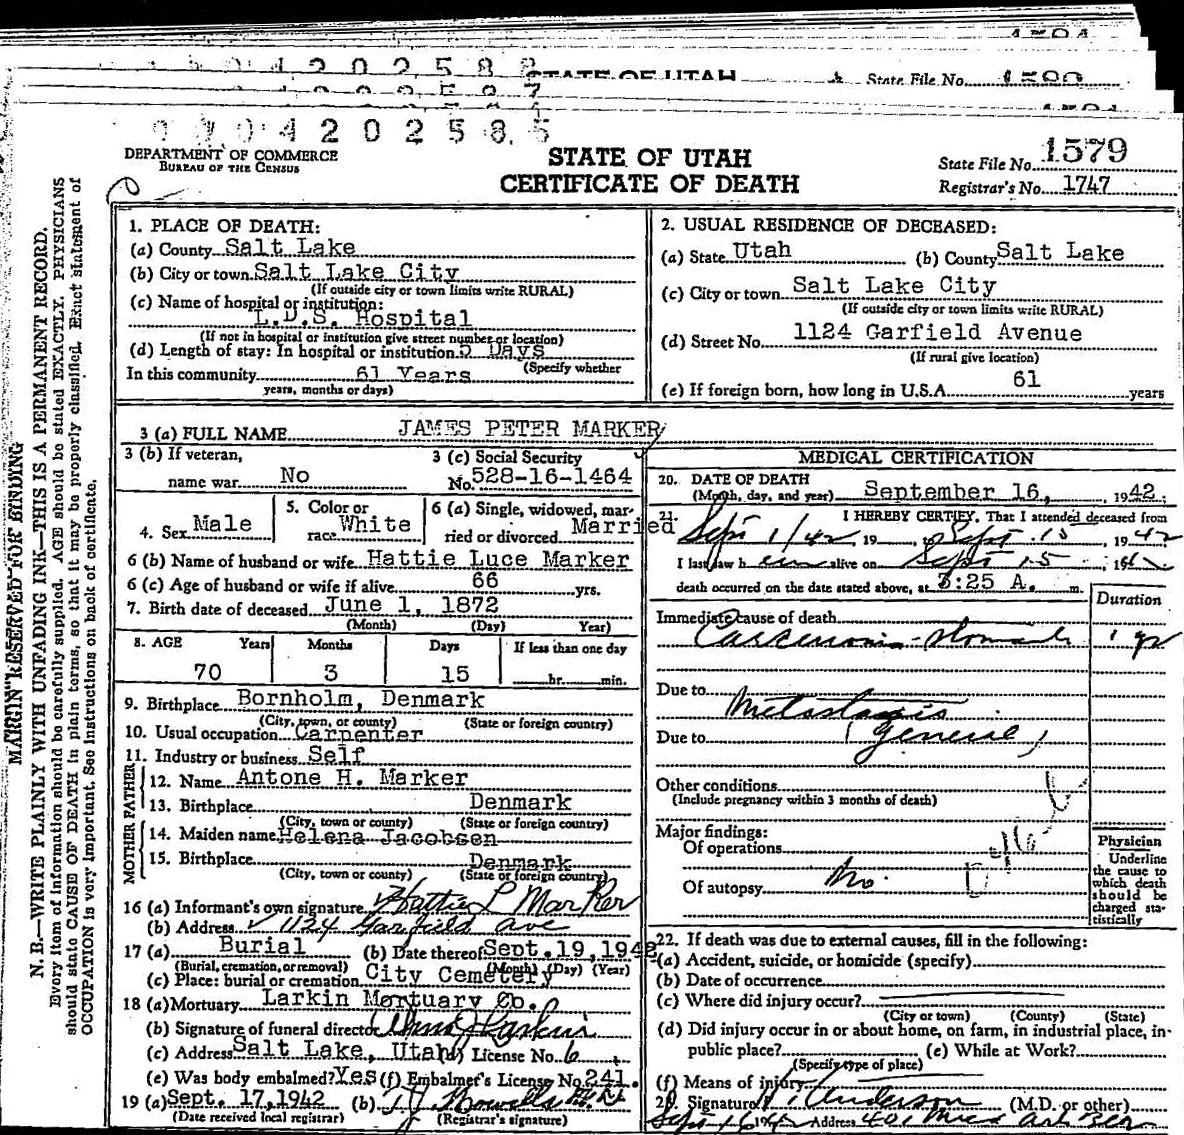 STATE OF UTAH State File No. 1580
0 4 2 0 2 5 8 5
DEPARTMENT OF COMMERCE
BUREAU OF THE CENSUS
STATE OF UTAH
CERTIFICATE OF DEATH
State File No. 1579
Registrar's No. 1747
MARGIN RESERVED FOR BINDING
N. B.—WRITE PLAINLY WITH UNFADING INK—THIS IS A PERMANENT RECORD.
Every item of information should be carefully supplied. AGE should be stated EXACTLY. PHYSICIANS
should state CAUSE OF DEATH in plain terms, so that it may be properly classified. Exact statement of
OCCUPATION is very important. See instructions on back of certificate.
1. PLACE OF DEATH:
(a) County Salt Lake
(b) City or town Salt Lake City
(If outside city or town limits write RURAL)
(c) Name of hospital or institution:
L.D.S. Hospital
(If not in hospital or institution give street number or location)
(d) Length of stay: In hospital or institution 5 Days
(Specify whether
In this community 61 Years
years, months or days)
2. USUAL RESIDENCE OF DECEASED:
(a) State Utah (b) County Salt Lake
(c) City or town Salt Lake City
(If outside city or town limits write RURAL)
(d) Street No. 1124 Garfield Avenue
(If rural give location)
(e) If foreign born, how long in U.S.A. 61 years
3 (a) FULL NAME JAMES PETER MARKER
3 (b) If veteran,
name war No
3 (c) Social Security
No. 528-16-1464
4. Sex Male
5. Color or
race White
6 (a) Single, widowed, mar-
ried or divorced Married
6 (b) Name of husband or wife Hattie Luce Marker
6 (c) Age of husband or wife if alive 66 yrs.
7. Birth date of deceased June 1, 1872
(Month) (Day) Year)
8. AGE Years Months Days If less than one day
70 3 15 hr. min.
9. Birthplace Bornholm, Denmark
(City, town, or county) (State or foreign country)
10. Usual occupation Carpenter
11. Industry or business Self
FATHER
12. Name Antone H. Marker
13. Birthplace Denmark
(City, town or county) (State or foreign country)
MOTHER
14. Maiden name Helena Jacobsen
15. Birthplace Denmark
(City, town or county) (State or foreign country)
16 (a) Informant's own signature Hattie L Marker
(b) Address 1124 Garfield Ave
17 (a) Burial (b) Date thereof Sept. 19, 1942
(Burial, cremation, or removal) (Month) (Day) (Year)
(c) Place: burial or cremation City Cemetery
18 (a) Mortuary Larkin Mortuary Co.
(b) Signature of funeral director Larkin
(c) Address Salt Lake, Utah (d) License No. 6
(e) Was body embalmed? Yes (f) Embalmer's License No. 241.
19 (a) Sept. 17, 1942 (b)
(Date received local registrar) (Registrar's signature)
MEDICAL CERTIFICATION
20. DATE OF DEATH
(Month, day, and year) September 16, 1942.
21. I HEREBY CERTIFY, That I attended deceased from
Sept 1/42, 19 , to Sept. 15 1942
I last saw him alive on Sept 15, 1942
death occurred on the date stated above, at :25 A. m.
Duration
Immediate cause of death
Carcinoma - stomach 1 yr
Due to Metastasis
Due to (General)
Other conditions
(Include pregnancy within 3 months of death)
Major findings:
Of operations
Of autopsy No.
Physician
Underline
the cause to
which death
should be
charged sta-
tistically
22. If death was due to external causes, fill in the following:
(a) Accident, suicide, or homicide (specify)
(b) Date of occurrence
(c) Where did injury occur?
(City or town) (County) (State)
(d) Did injury occur in or about home, on farm, in industrial place, in
public place? (e) While at Work?
(Specify type of place)
(f) Means of injury
Signature Anderson (M.D. or other)
Sept 16 1942 Address